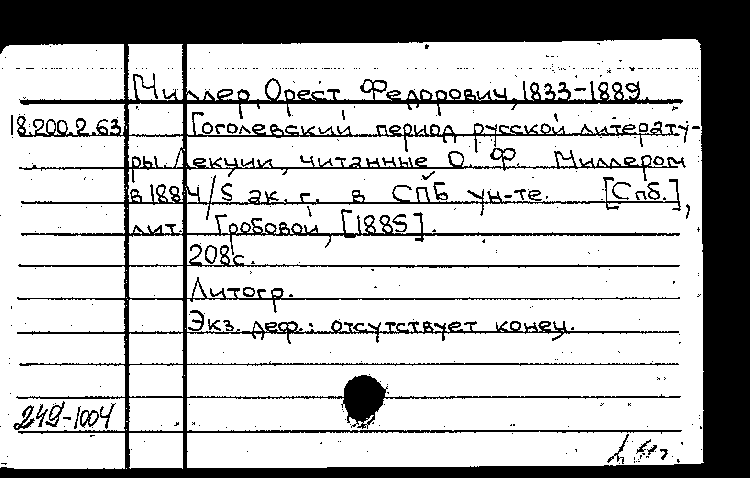 Миллер, Орест Федорович, 1833-1889.
18.200.2.63 Гоголевский период русской литерату-
ры. Лекции, читанные О. Ф. Миллером
в 1884/5 ак. г. в СПБ ун-те. [Спб.],
лит. Гробовой, [1885].
208с.
Литогр.
Экз. деф.: отсутствует конец.
249-1004